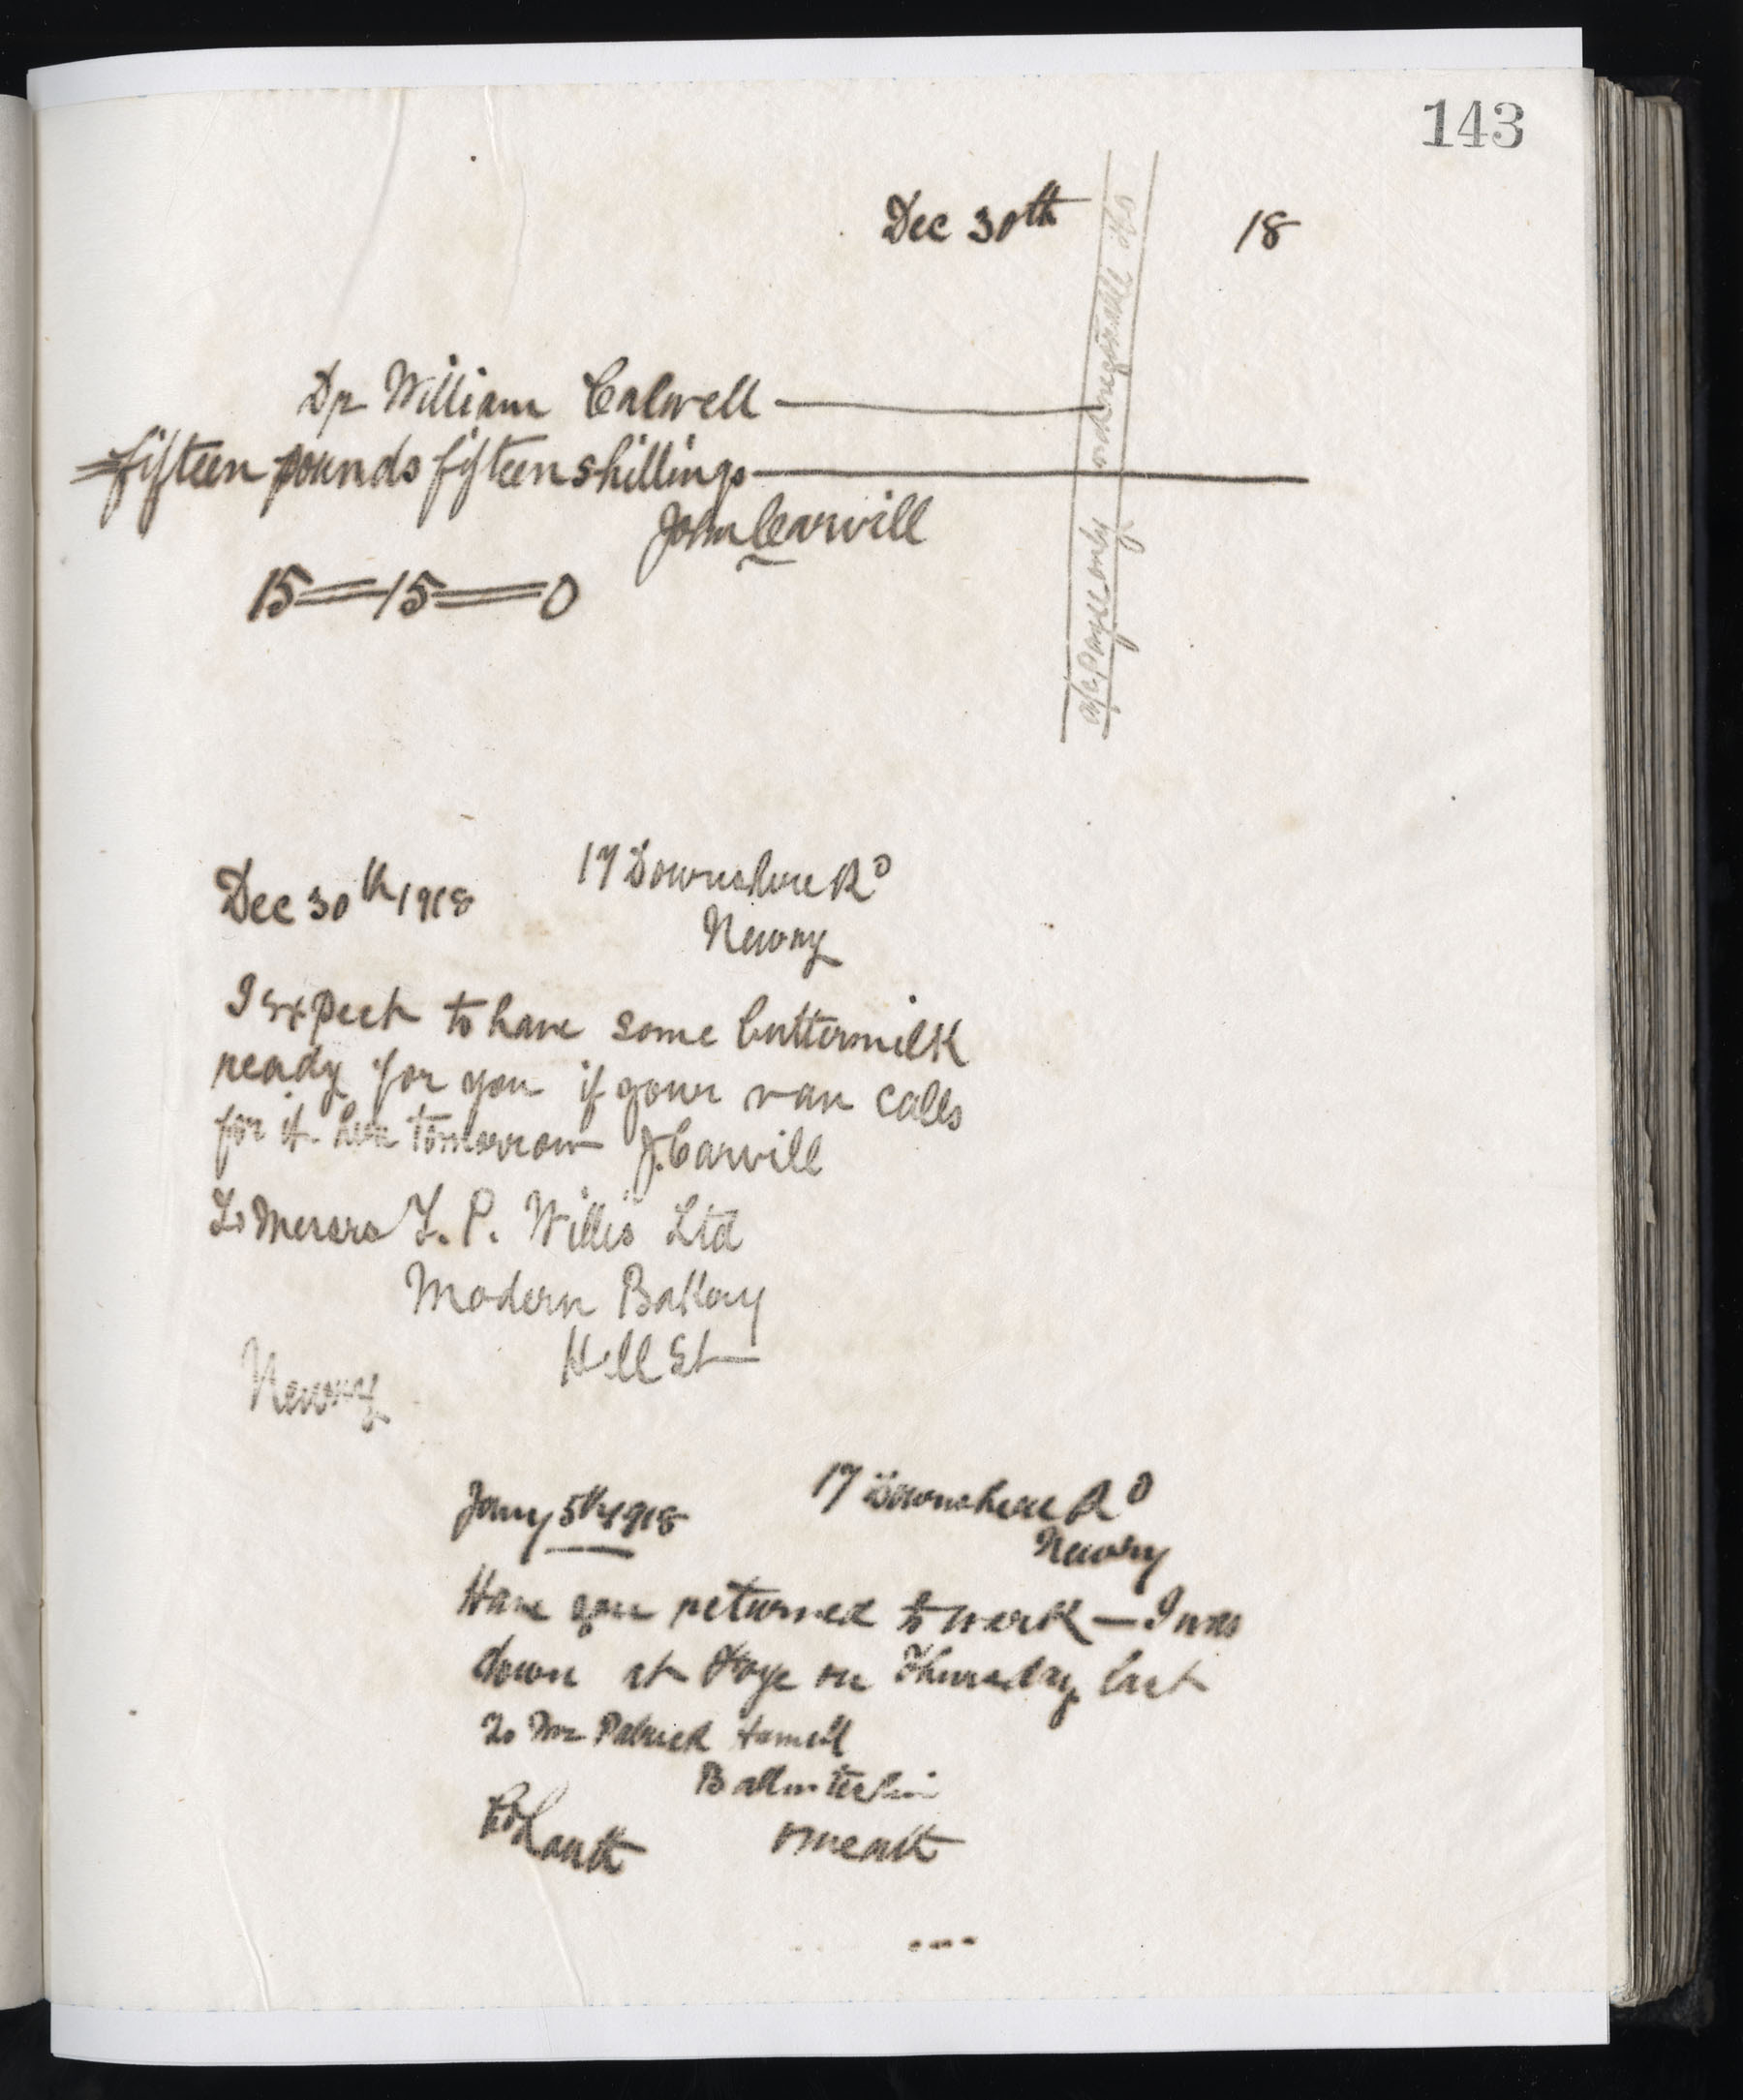 143
Dec 30th 18
Dr William Calwell
fifteen pounds fifteen shillings
John Carvill
15=15=0
a/c Payee only not negotiable
Dec 30th 1918 17 Downshire Rd
Newry
I expect to have some buttermilk
ready for you if your van calls
for it here tomorrow J. Carvill
To Messrs T. P. Willis Ltd
Modern Bakery
Hill St
Newry
Jany 5th 1918 17 Downshire Rd
Newry
Have you returned to work — I was
down at on Thursday last
To Mr Patrick
Ballinteskin
Omeath
Co Louth